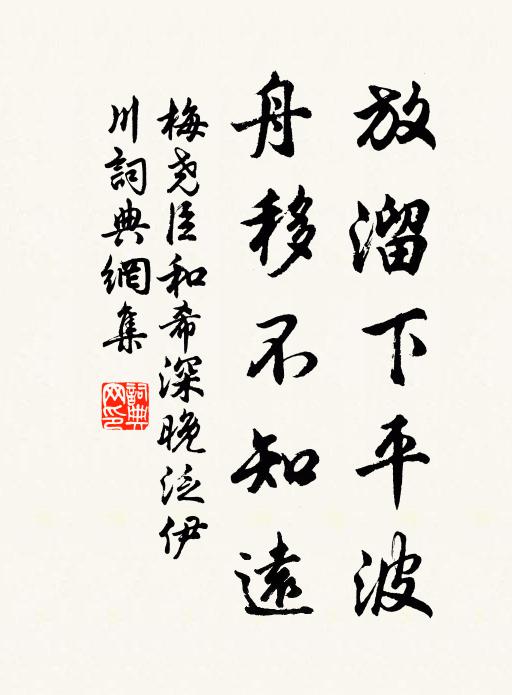 放溜下平波
舟移不知遠
梅尧臣和希深晚泛伊
川詞典網集
詞典网印